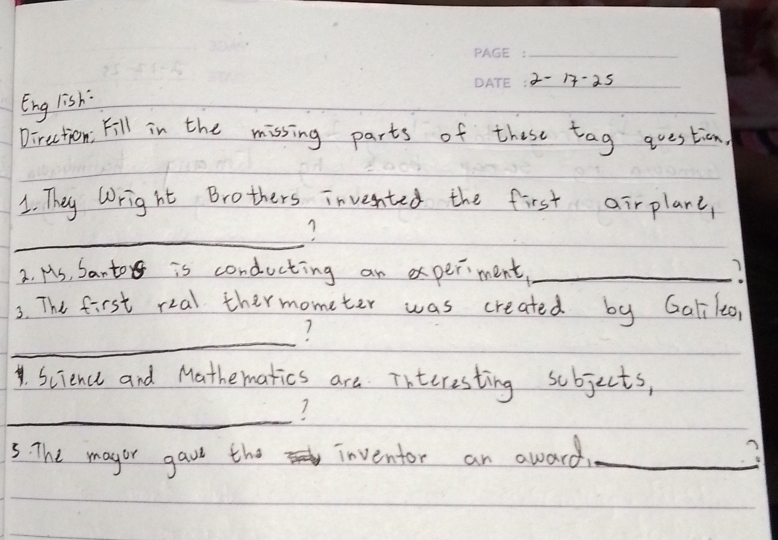 PAGE :
DATE : 2-17-25
English:
Direction: Fill in the missing parts of these tag question.
1. They Wright Brothers invented the first airplane,
?
2. Ms. Santos is conducting an experiment, ?
3. The first real thermometer was created by Galileo,
?
4. Science and Mathematics are interesting subjects,
?
5. The mayor gave the inventor an award, ?